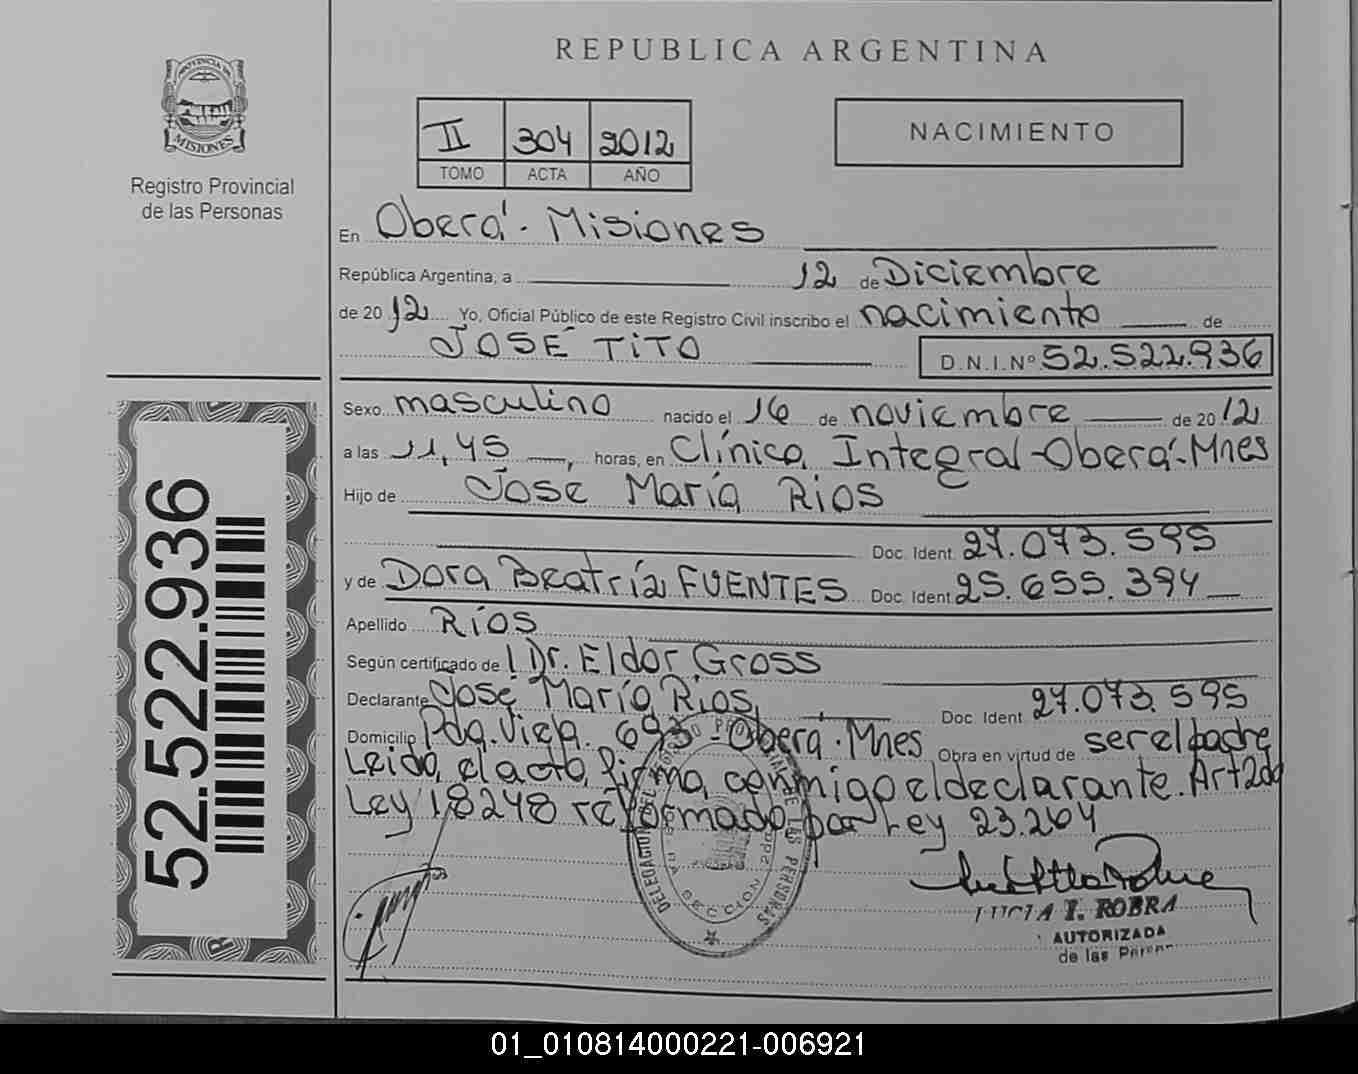 REPUBLICA ARGENTINA
PROVINCIA DE
MISIONES
Registro Provincial
de las Personas
II 304 2012
TOMO ACTA AÑO
NACIMIENTO
En Oberá - Misiones
República Argentina, a 12 de Diciembre
de 2012 Yo, Oficial Público de este Registro Civil inscribo el nacimiento de
JOSÉ TITO D.N.I. Nº 52.522.936
Sexo masculino nacido el 16 de noviembre de 2012
a las 11,45, horas, en Clínica Integral - Oberá - Mnes
Hijo de Jose María Rios
Doc. Ident. 27.073.595
y de Dora Beatríz FUENTES Doc. Ident. 25.655.394
Apellido Ríos
Según certificado de Dr. Eldor Gross
Declarante José María Rios Doc. Ident. 27.073.595
Domicilio Pda. Vieja. 693 - Oberá - Mnes Obra en virtud de ser el padre
Leida el acta, firma conmigo el declarante. Art 2do
Ley 18248 reformado por Ley 23.264
DELEGACION DEL REGISTRO PROVINCIAL DE LAS PERSONAS
SECCION 2da
LUCIA I. ROBRA
AUTORIZADA
de las
52.522.936
01_010814000221-006921